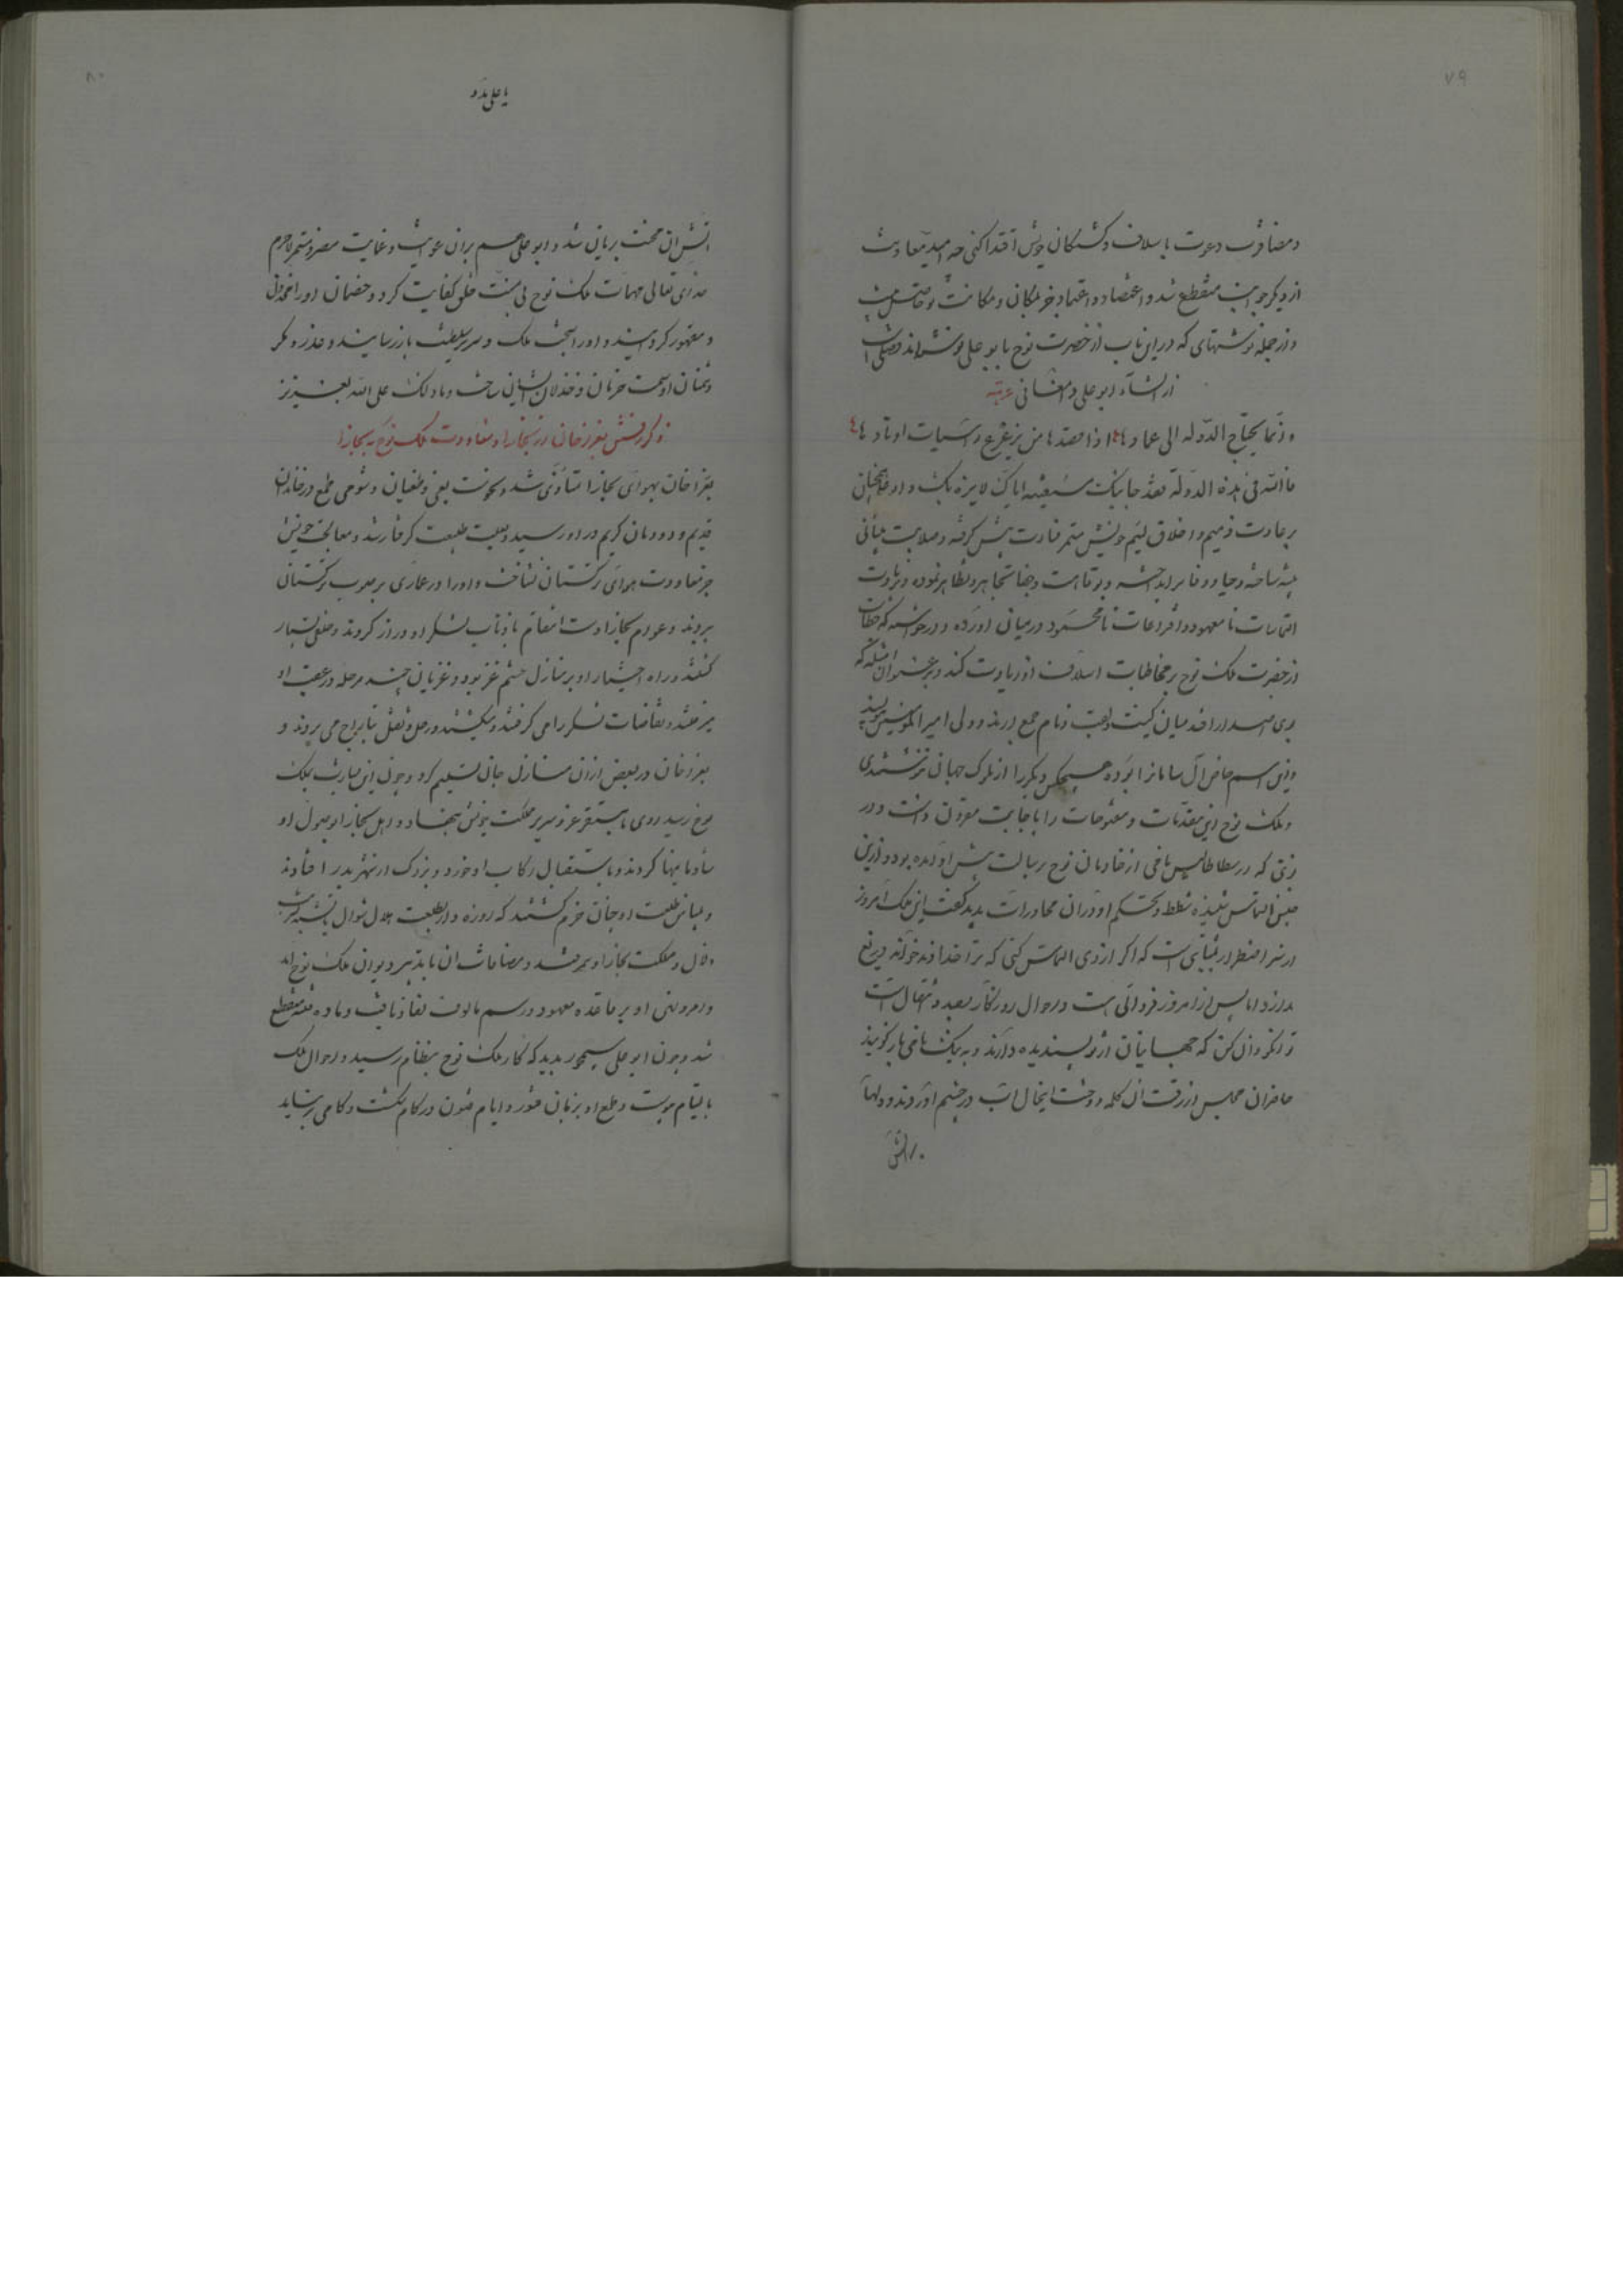 ۷۹
و مضافرت دعوت باسلاف و گذشتگان خویش اقتدا کنی چه امید معاونت
از دیگر جوانب منقطع شد و اعتضاد و اعتماد جز بمکان و مکانت تو حاصل نیست
و از جمله نوشتهای که در این باب از حضرت نوح بابو علی نوشته‌اند فصلی است
از انشاء ابو علی دامغانی عربیه
و انما یحتاج الدوله الی عمادها اذا قصدها من یزعزع راسیات اوتادها
فالله فی هذه الدولة فقد جاءتک مستغیثه ایاک لا بغیرک و او همچنان
بر عادت ذمیم و اخلاق لئیم خویش مستمر قساوت پیش گرفته و صلابت پیشانی
پیشه ساخته و حیا و وفا برانداخته و بوقاحت و جفا تجاهر و تظاهر نموده و زیادت
التماسات نا معهود و اقتراحات نا محمود در میان آورده و درخواسته که خطاب
از حضرت ملک نوح بر مخاطبات اسلاف او زیادت کند و بر عنوان امثله که
بوی اصدار افتد میان کنیت و لقب و نام جمع آرند و ولی امیر المؤمنین نویسند
و این اسم خاص آل سامان را بوده هیچکس دیگر را از ملوک جهان ننوشتندی
و ملک نوح این مقدمات و مقترحات را باجابت مقرون داشت و در
وقتی که ارسطاطالیس نامی از خادمان نوح برسالت پیش او آمده بود و ازین
جنس التماس شطط و تحکم او در آن محاورات بدید گفت این ملک امروز
در سر اضطرار بمثابتی است که اگر از وی التماس کنی که ترا خداوند خواند دریغ
ندارد اما پس از امروز فردائی است و احوال روزگار بصدد انتقال است
تو انگه و آن کن که جهانیان از تو پسندیده دارند و به نیک نامی باز گویند
حاضران مجلس از رقت آن کلمه و وحشت آن حال آب در چشم آوردند و دلها
بر آتش
۸۰
یا علی مدد
آتش آن محنت بریان شد و ابو علی هم بران غوایت و عمایت مصر و مستمر لاجرم
خدای تعالی مهمات ملک نوح بی منت خلق کفایت کرد و خصمان او را مخذول
و مقهور گردانید و او را بتخت ملک و سریر سلطنت باز رسانید و غدر و مکر
دشمنان او سمت حرمان و خذلان ایشان ساخت و ما ذلک علی الله بعزیز
ذکر رفتن بغراخان از بخارا و معاودت ملک نوح به بخارا
بغرا خان بهوای بخارا متأذی شد و نحوست بغی و طغیان و شومی طمع در خاندان
قدیم و دودمان کریم در او رسید و بعلت صعب گرفتار شد و معالجت خویش
جز معاودت هوای ترکستان نشناخت و او را در عماری بر صوب ترکستان
بردند و عوام بخارا دست انتقام باذناب لشکر او دراز کردند و خلق بسیار
کشتند و راه اجتیاز او بر منازل حشم غز بود و غزیان چند مرحله در عقب او
میرفتند و بقایای لشکر را می گرفتند و میکشتند و رحل و ثقل بتاراج می بردند و
بغراخان در بعض از آن منازل جان تسلیم کرد و چون این بشارت بملک
نوح رسید روی بمستقر عز و سریر مملکت خویش نهاد و اهل بخارا بوصول او
شادیانها کردند و باستقبال رکاب او خورد و بزرگ از شهر بدر افتادند
و بلباس طلعت او چنان خرم گشتند که روزه دار بطلعت هلال شوال و تشنه بشربت
زلال و مملکت بخارا و سمرقند و مضافات آن با تدبیر دیوان ملک نوح آمد
و امر و نهی او بر قاعده معهود و رسم مألوف نفاذ یافت و ماده فتنه منقطع
شد و چون ابو علی سیمجور بدید که کار ملک نوح بنظام رسید و احوال ملک
بالتیام پیوست و طمع او بزبان فتور و ایام فتون در کام شکست و کامی بر نیامد